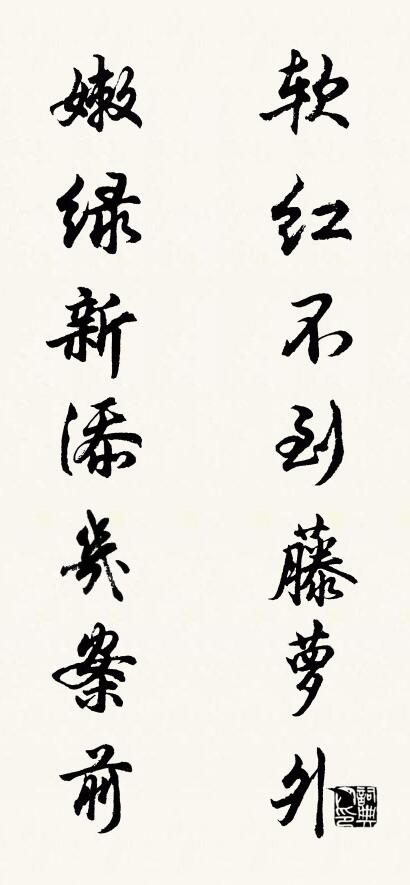 软红不到藤萝外
嫩绿新添幾案前
詞典